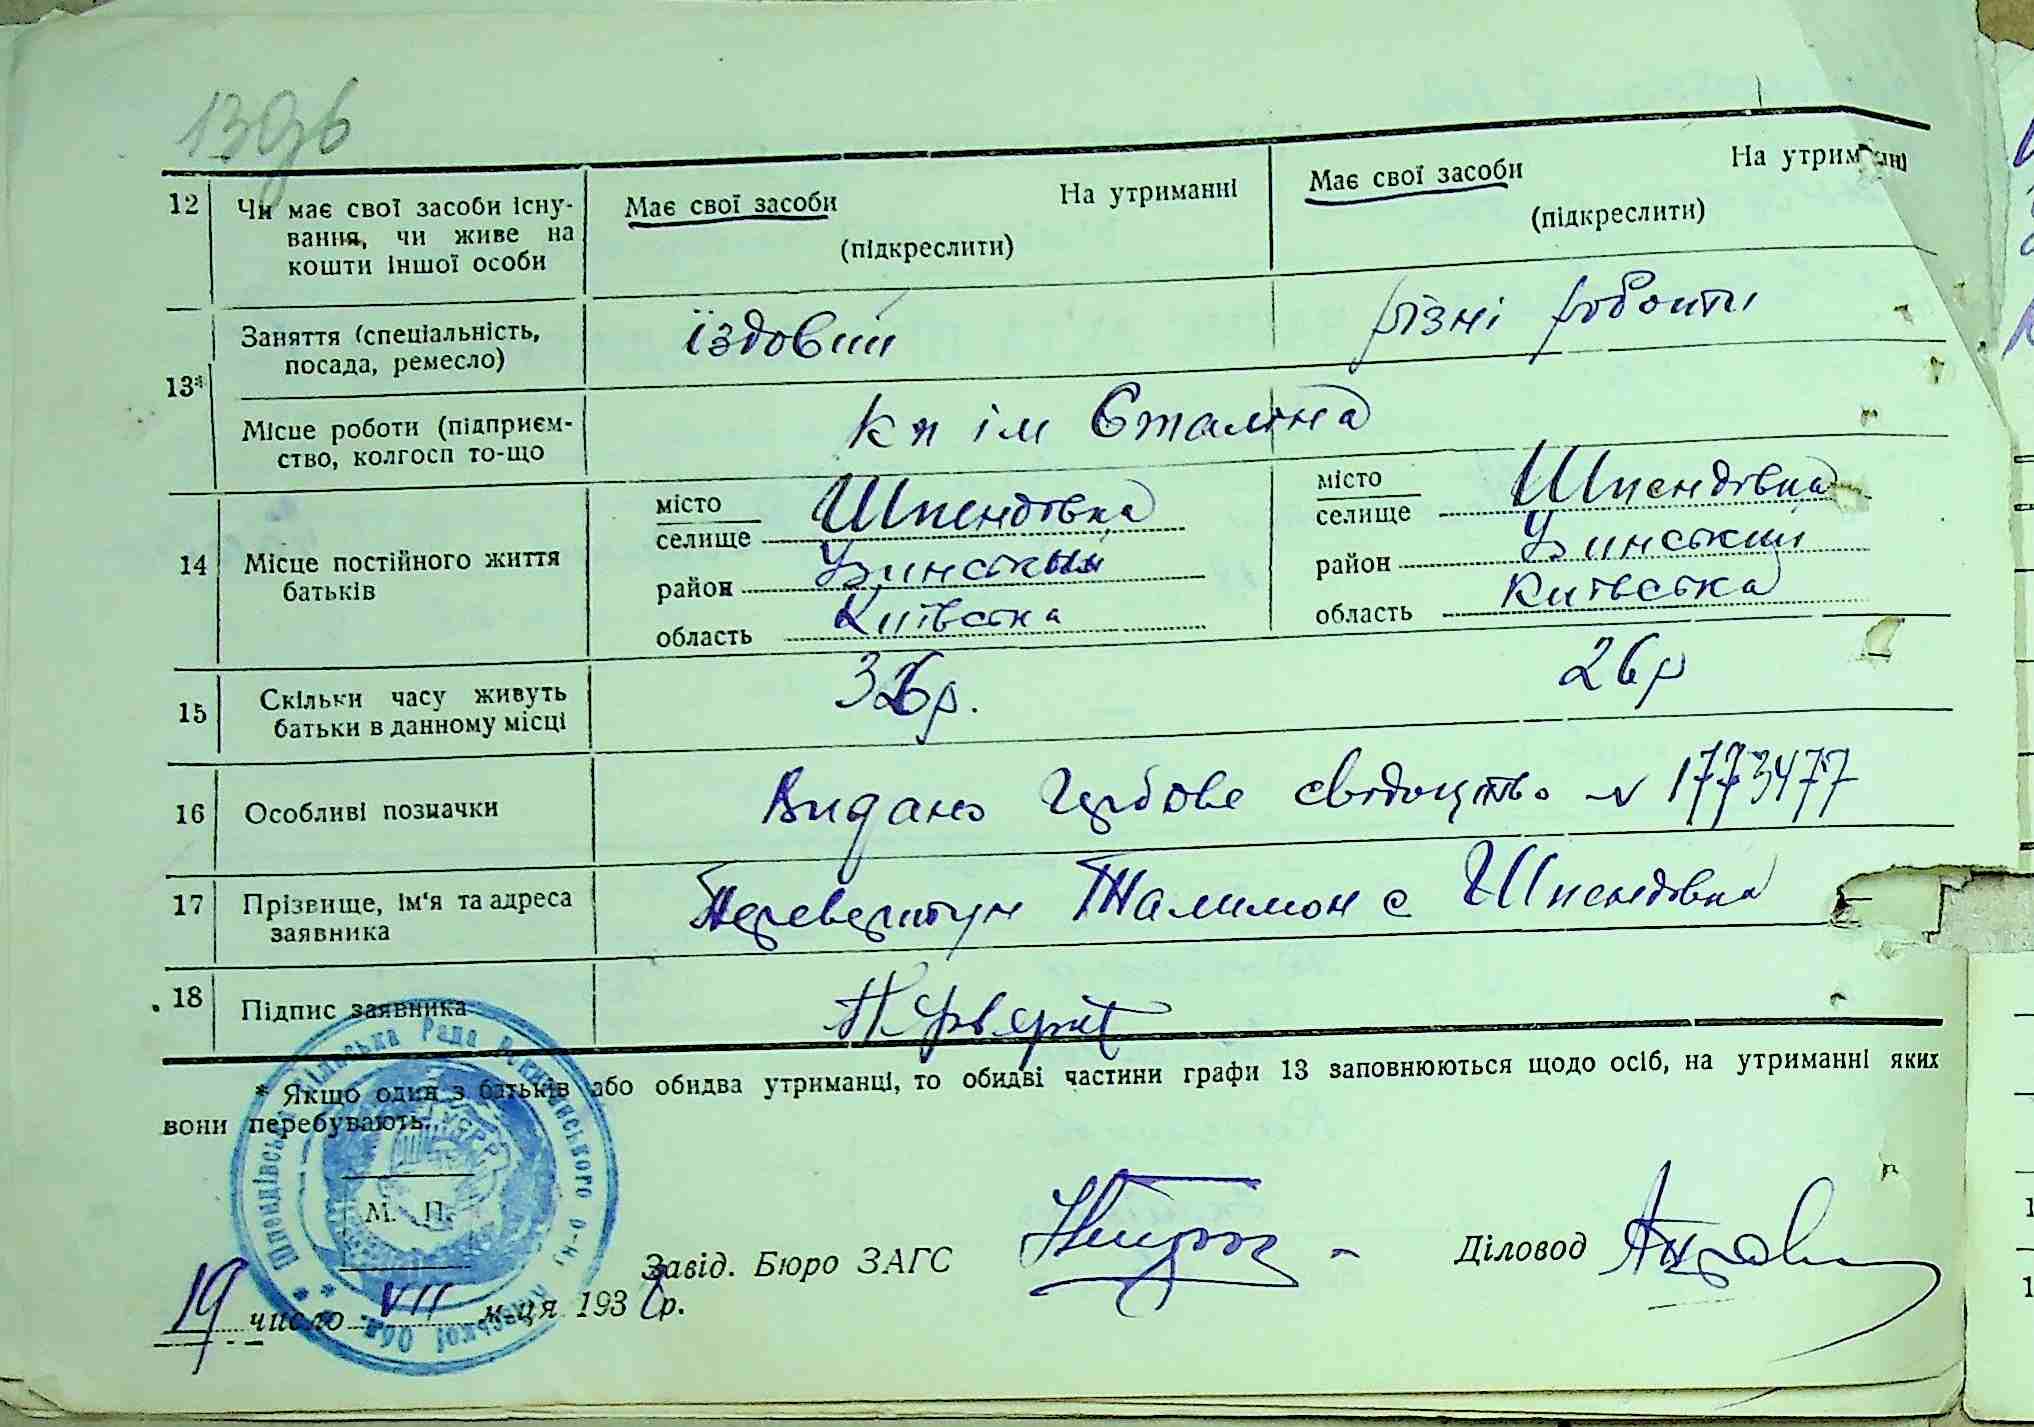 130зв
12 Чи має свої засоби існу- Має свої засоби На утриманні Має свої засоби На утриманні
вання, чи живе на (підкреслити) (підкреслити)
кошти іншої особи
Заняття (спеціальність, їздовий різні роботи
посада, ремесло)
13*
Місце роботи (підприєм- кп ім Сталіна
ство, колгосп то-що
14 Місце постійного життя батьків
місто селище Шпендівка місто селище Шпендівка
район Узинський район Узинський
область Київська область Київська
15 Скільки часу живуть 26р
батьки в данному місці
16 Особливі позначки Видано Гербове свідоцтво № 1773477
17 Прізвище, ім'я та адреса Перевертун Талимон с Шпендівка
заявника
18 Підпис заявника
* Якщо один з батьків або обидва утриманці, то обидві частини графи 13 заповнюються щодо осіб, на утриманні яких
вони перебувають.
Шпендівська Рада р-ну Київської Обл.
УСРР
М. П.
Завід. Бюро ЗАГС Діловод
19 число VII м-ця 193 р.